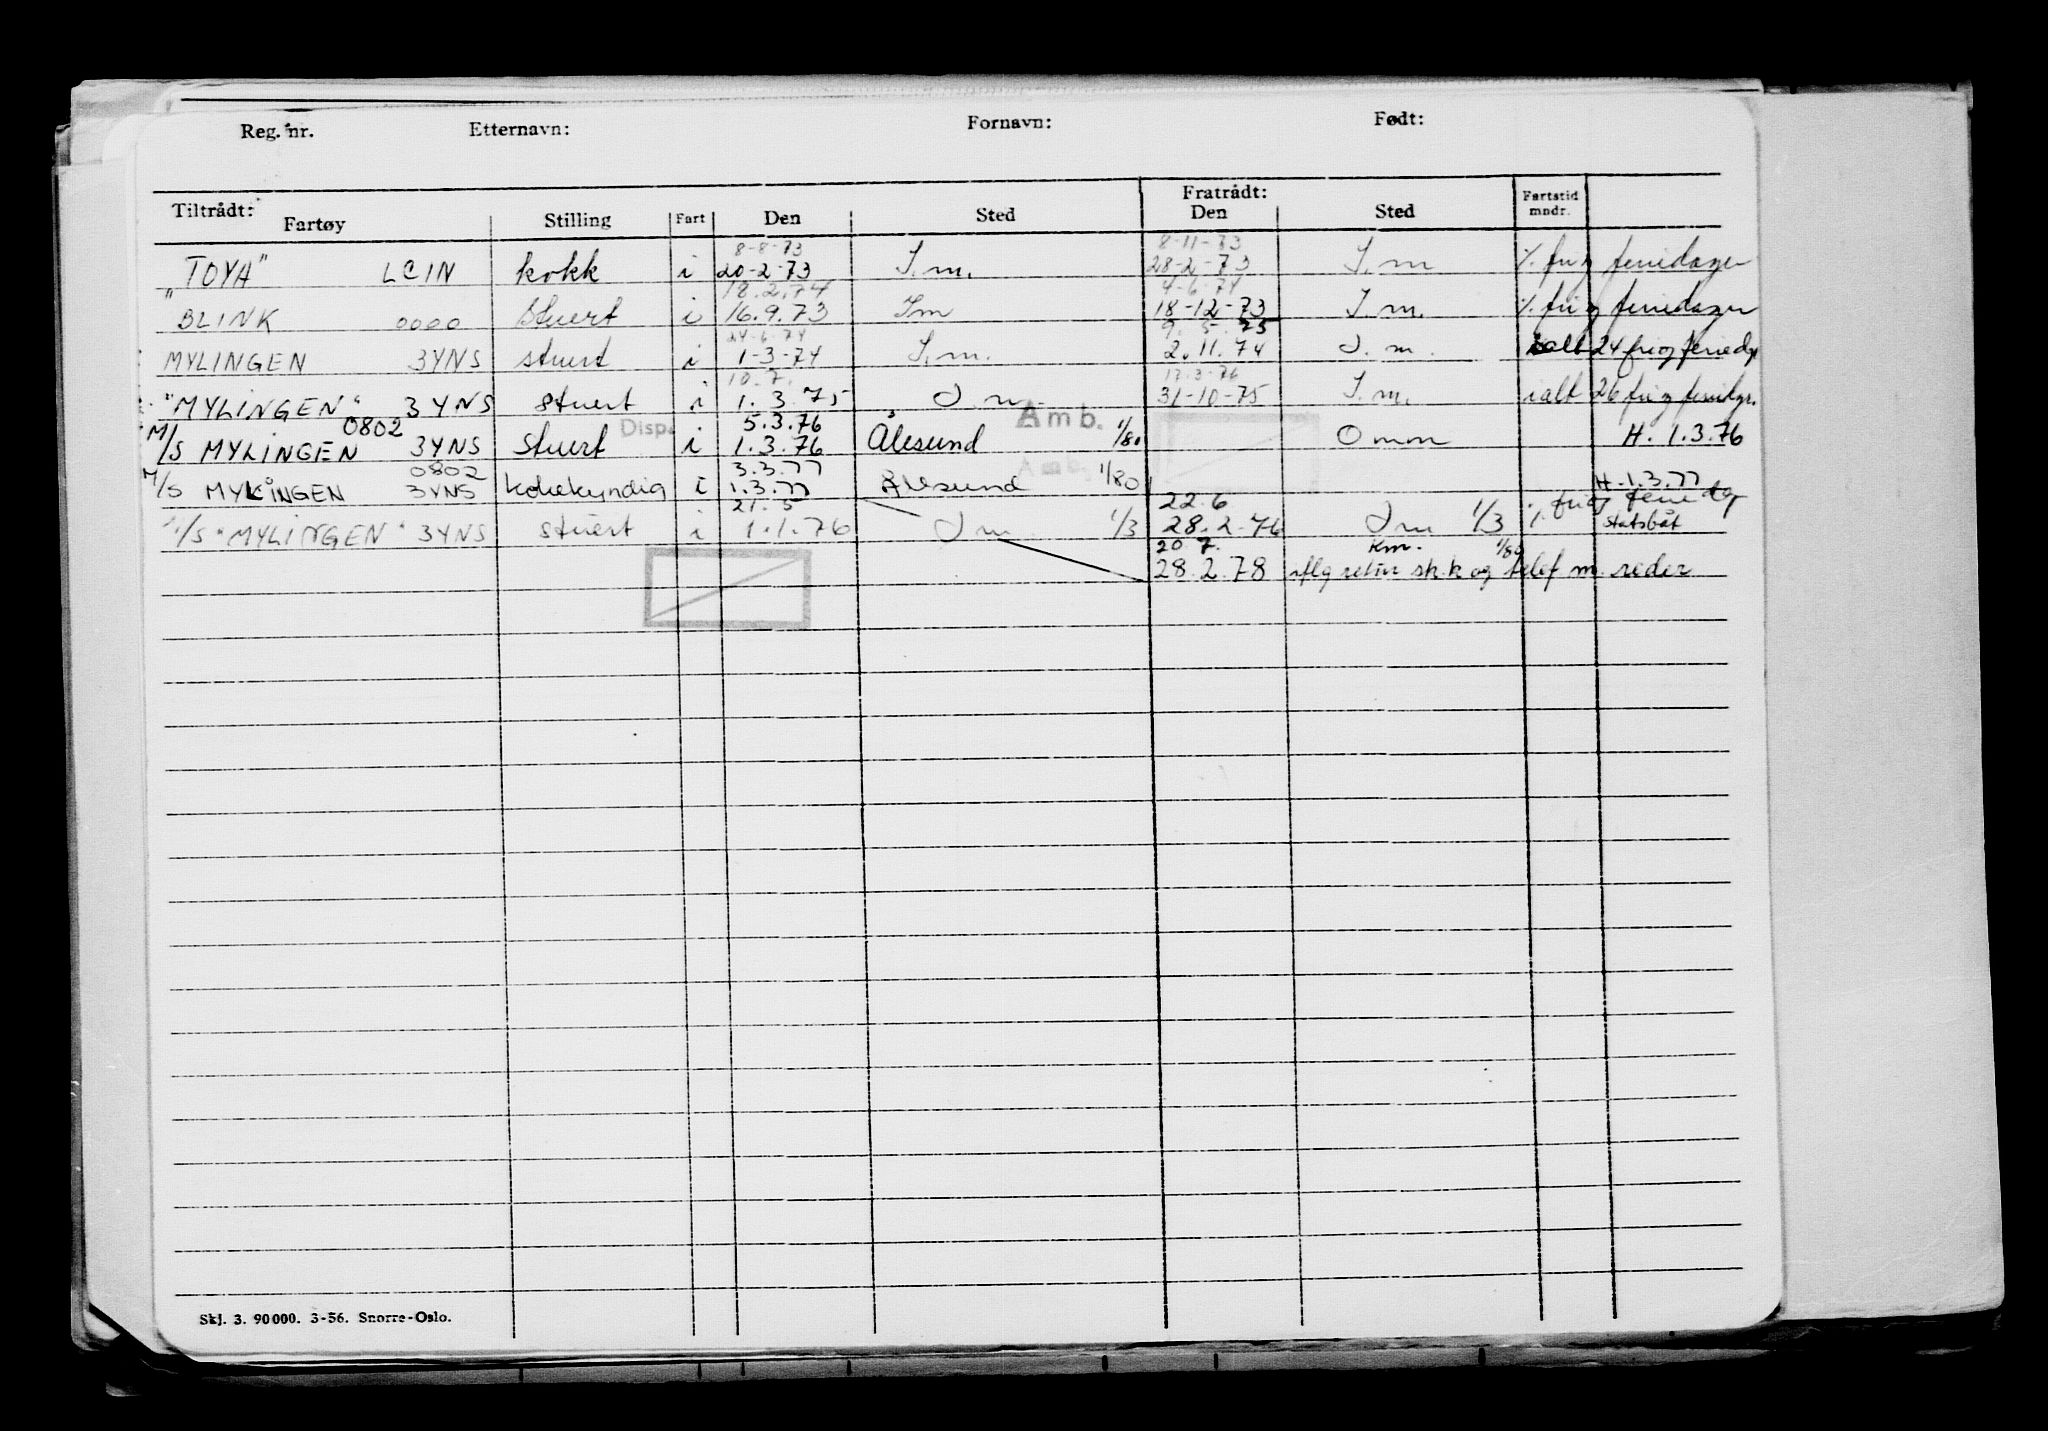 Reg. nr. Etternavn: Fornavn: Født:
Tiltrådt: Fratrådt: Fartstid
Fartøy Stilling Fart Den Sted Den Sted mndr.
8-8-73 8-11-73
"TOYA" LCIN kokk i 20-2-73 I.m. 28-2-73 I.m % fri og feriedager
18.2.74 4-6-74
"BLINK 0000 Stuert i 16.9.73 Im 18-12-73 I.m. % fri og feriedager
24-6-74 9. 5. 75
MYLINGEN 3YNS stuert i 1-3-74 I.m. 2.11.74 I.m. ialt 24 fri og feriedgr
10.7. 17-3-76
"MYLINGEN" 3YNS stuert i 1.3.75 I.m. 31-10-75 I.m. ialt 26 fri og feriedgr.
0802 Disp. 5.3.76 Amb.
M/S MYLINGEN 3YNS stuert i 1.3.76 Ålesund 1/80 Omm H. 1.3.76
0802 3.3.77 Amb.
M/S MYKINGEN 3YNS kokekyndig i 1.3.77 Ålesund 1/80 H-1.3.77
21.5 22.6 % fri og ferie dg
M/S "MYLINGEN" 3YNS stuert i 1.1.76 I m 1/3 28.2-76 I m 1/3 statsbåt
20.7. Km. 1/80
28.2.78 iflg retur sk.k og telef m. reder
Skj. 3. 90000. 3-56. Snorre-Oslo.